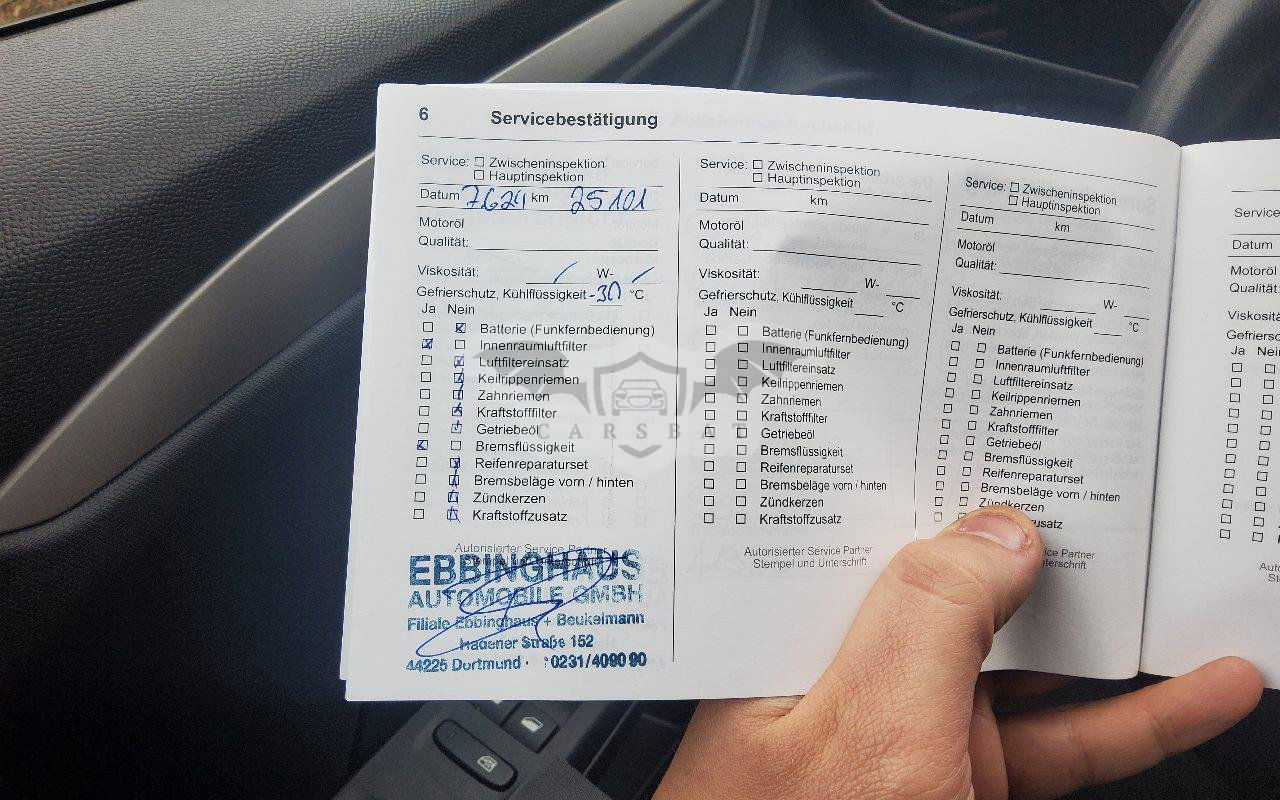 6 Servicebestätigung
Service: Zwischeninspektion
Hauptinspektion
Datum 7624 km 25101
Motoröl
Qualität:
Viskosität: / W- /
Gefrierschutz, Kühlflüssigkeit -30 °C
Ja Nein
Batterie (Funkfernbedienung)
Innenraumluftfilter
Luftfiltereinsatz
Keilrippenriemen
Zahnriemen
Kraftstofffilter
Getriebeöl
Bremsflüssigkeit
Reifenreparaturset
Bremsbeläge vorn / hinten
Zündkerzen
Kraftstoffzusatz
Autorisierter Service Partner
EBBINGHAUS
AUTOMOBILE GMBH
Filiale Ebbinghaus + Beukelmann
Hagener Straße 152
44225 Dortmund · 0231/4090 90
Service: Zwischeninspektion
Hauptinspektion
Datum km
Motoröl
Qualität:
Viskosität: W-
Gefrierschutz, Kühlflüssigkeit °C
Ja Nein
Batterie (Funkfernbedienung)
Innenraumluftfilter
Luftfiltereinsatz
Keilrippenriemen
Zahnriemen
Kraftstofffilter
Getriebeöl
Bremsflüssigkeit
Reifenreparaturset
Bremsbeläge vorn / hinten
Zündkerzen
Kraftstoffzusatz
Autorisierter Service Partner
Stempel und Unterschrift
Service: Zwischeninspektion
Hauptinspektion
Datum km
Motoröl
Qualität:
Viskosität: W-
Gefrierschutz, Kühlflüssigkeit °C
Ja Nein
Batterie (Funkfernbedienung)
Innenraumluftfilter
Luftfiltereinsatz
Keilrippenriemen
Zahnriemen
Kraftstofffilter
Getriebeöl
Bremsflüssigkeit
Reifenreparaturset
Bremsbeläge vorn / hinten
Zündkerzen
Service Partner
Service
Datum
Motoröl
Qualität:
Ja
CARSBAT